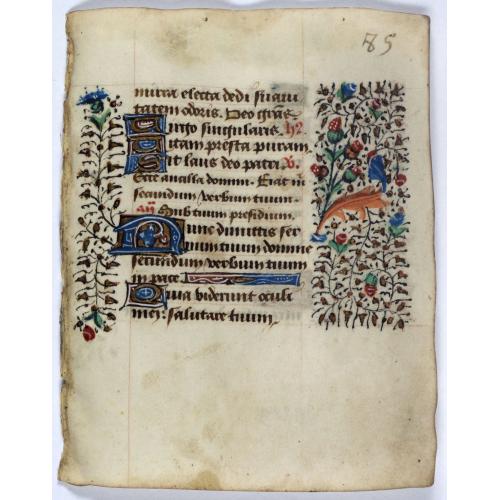 85
mirra electa dedi suavi
tatem odoris. Deo gras
Virgo singularis. hz
Vitam presta puram
Sit laus deo patri v.
Ecce ancilla domini. Fiat m
secundum verbum tuum.
an Sub tuum presidium.
Nunc dimittis ser
vum tuum domine
secundum verbum tuum
in pace
Quia viderunt oculi
mei: salutare tuum.